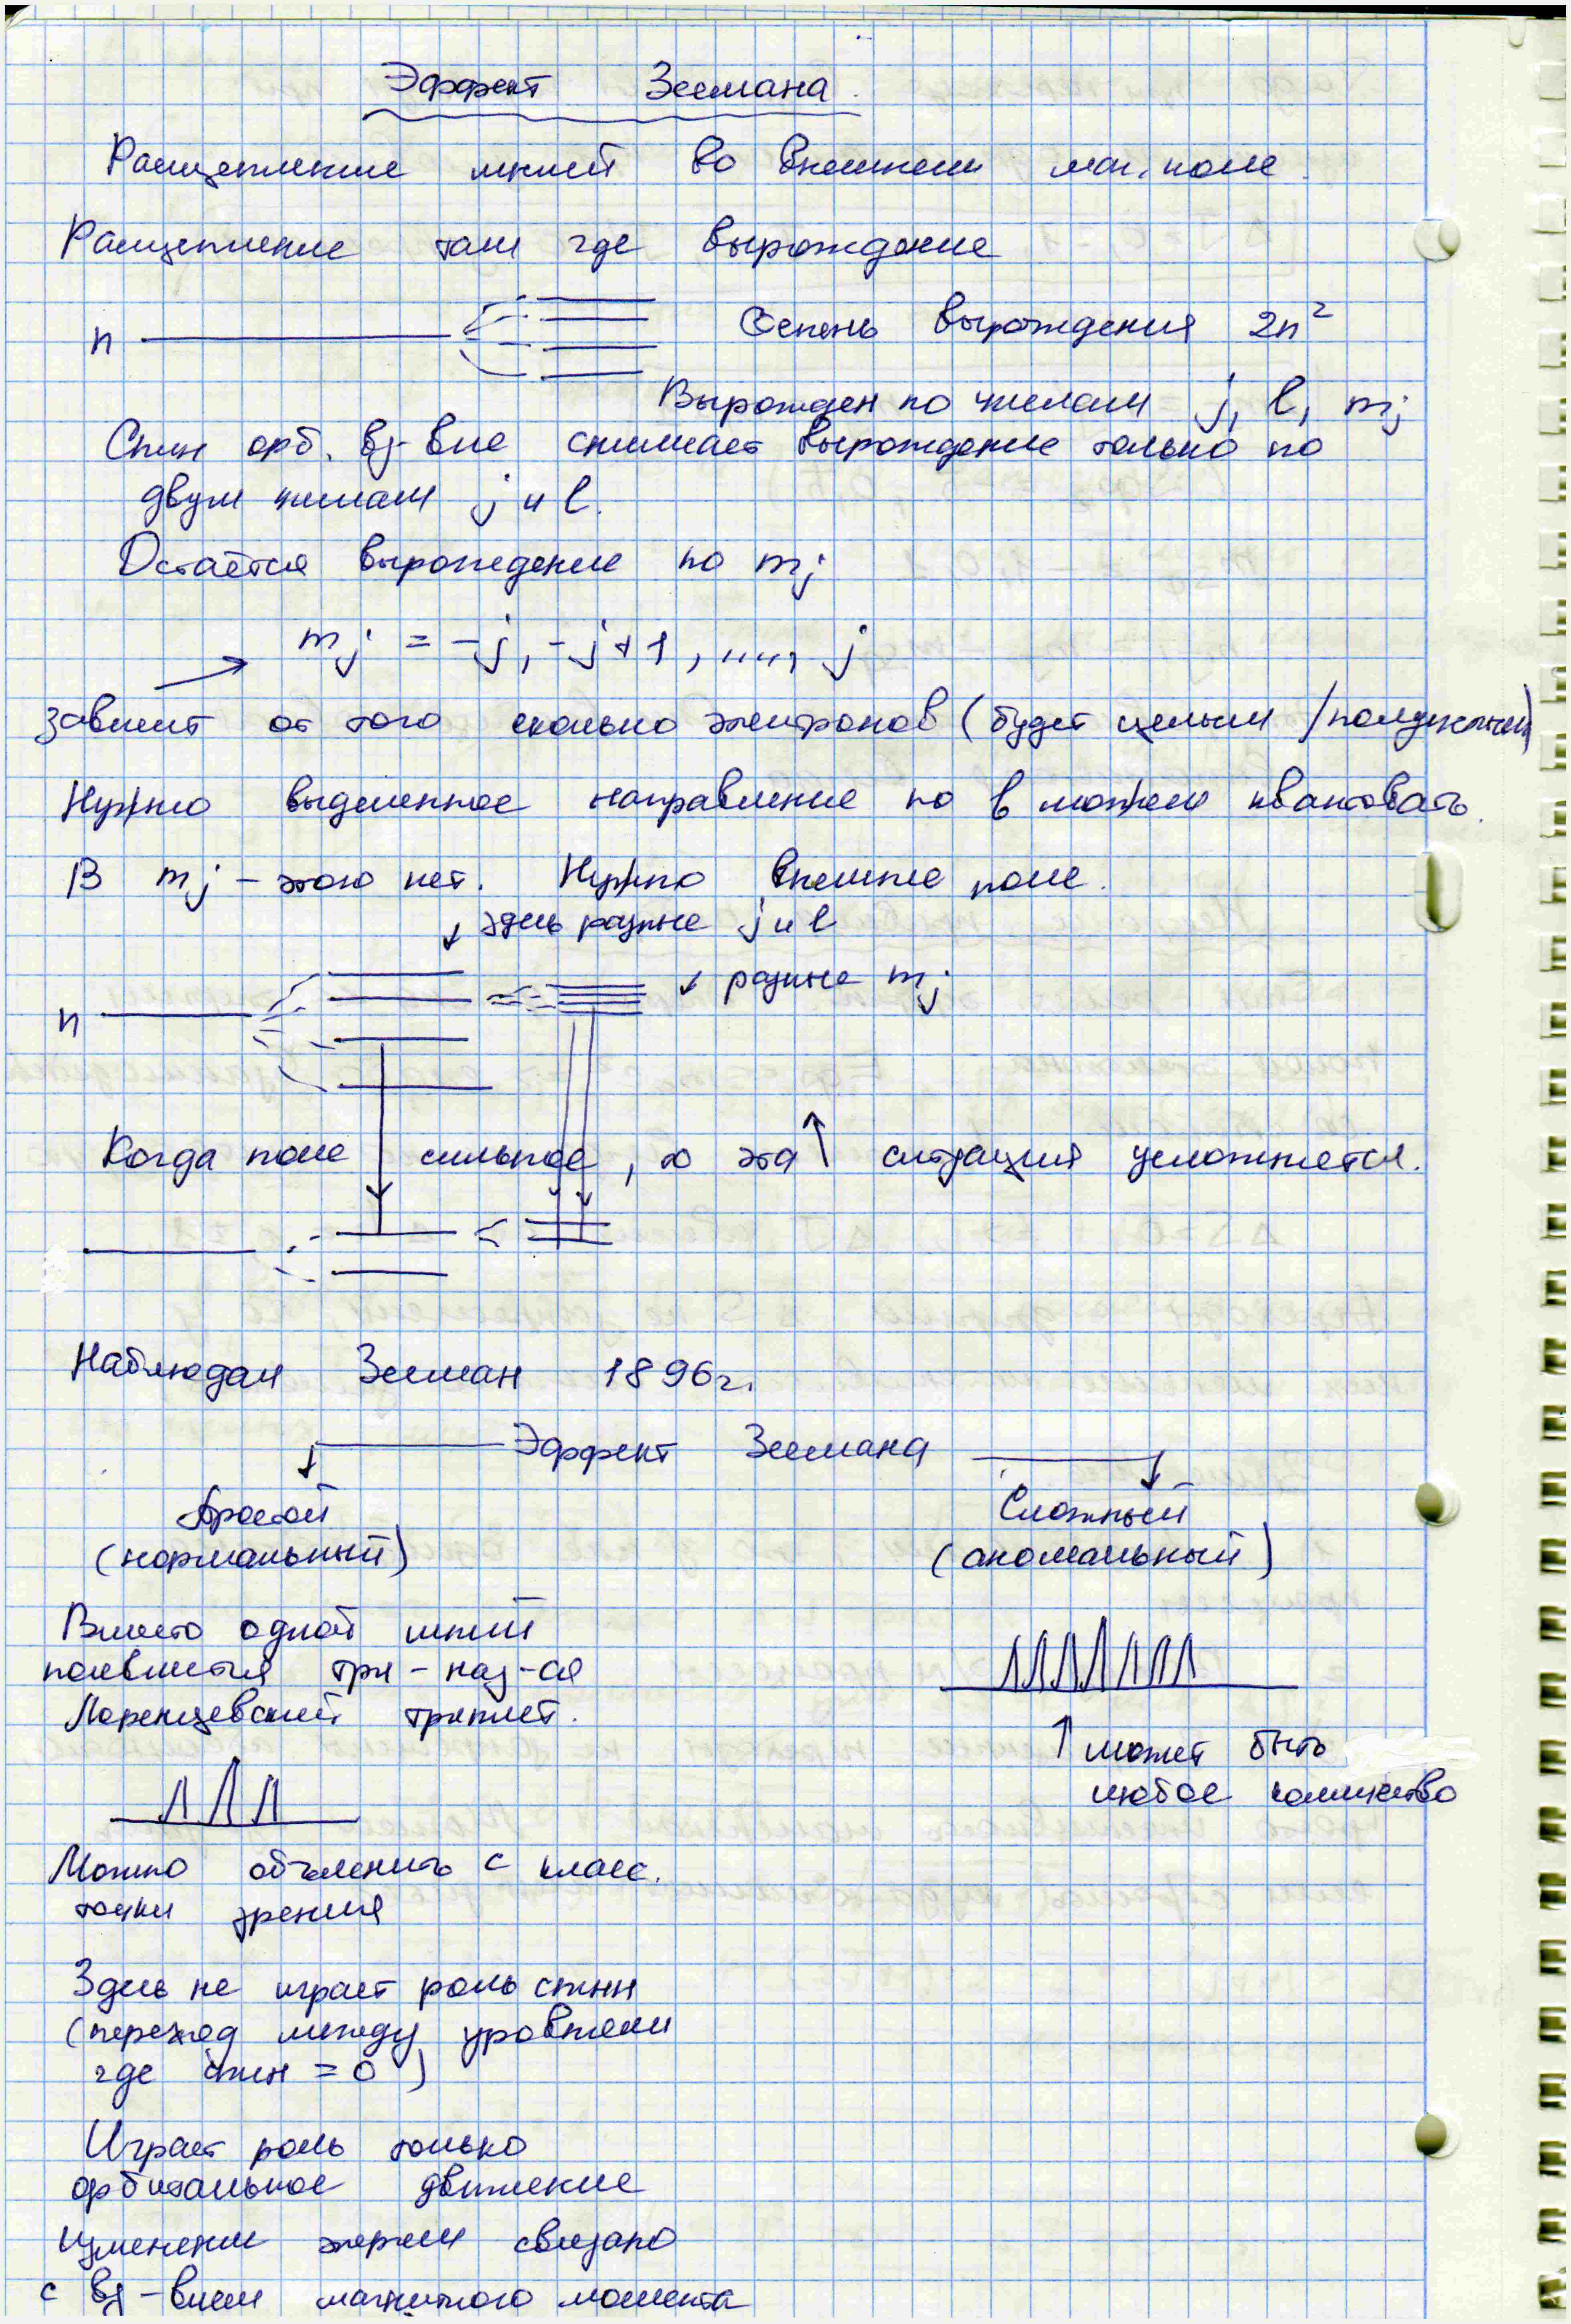 Эффект Зеемана.
Расщепление линий во внешнем маг. поле.
Расщепление там где вырождение
n
Степень вырождения 2n²
Вырожден по числам j, l, mj
Спин орб. вз-вие снимает вырождение только по
двум числам j и l.
Остаётся вырождение по mj
mj = -j, -j+1, ...., j
зависит от того сколько электронов (будет целым / полуцелым)
Нужно выделенное направление по в можем квантовать.
В mj - этого нет. Нужно внешнее поле.
здесь разные j и l
разные mj
n
Когда поле сильное, то эта ситуация усложняется.
Наблюдал Зееман 1896г.
Эффект Зеемана
Простой
(нормальный)
Сложный
(аномальный)
Вместо одной линии
появляются три - наз-ся
Лоренцевский триплет.
может быть
любое количество
Можно объяснить с класс.
точки зрения
Здесь не играет роль спин
(переход между уровнями
где спин = 0)
Играет роль только
орбитальное движение
Изменении энергии связано
с вз-вием магнитного момента